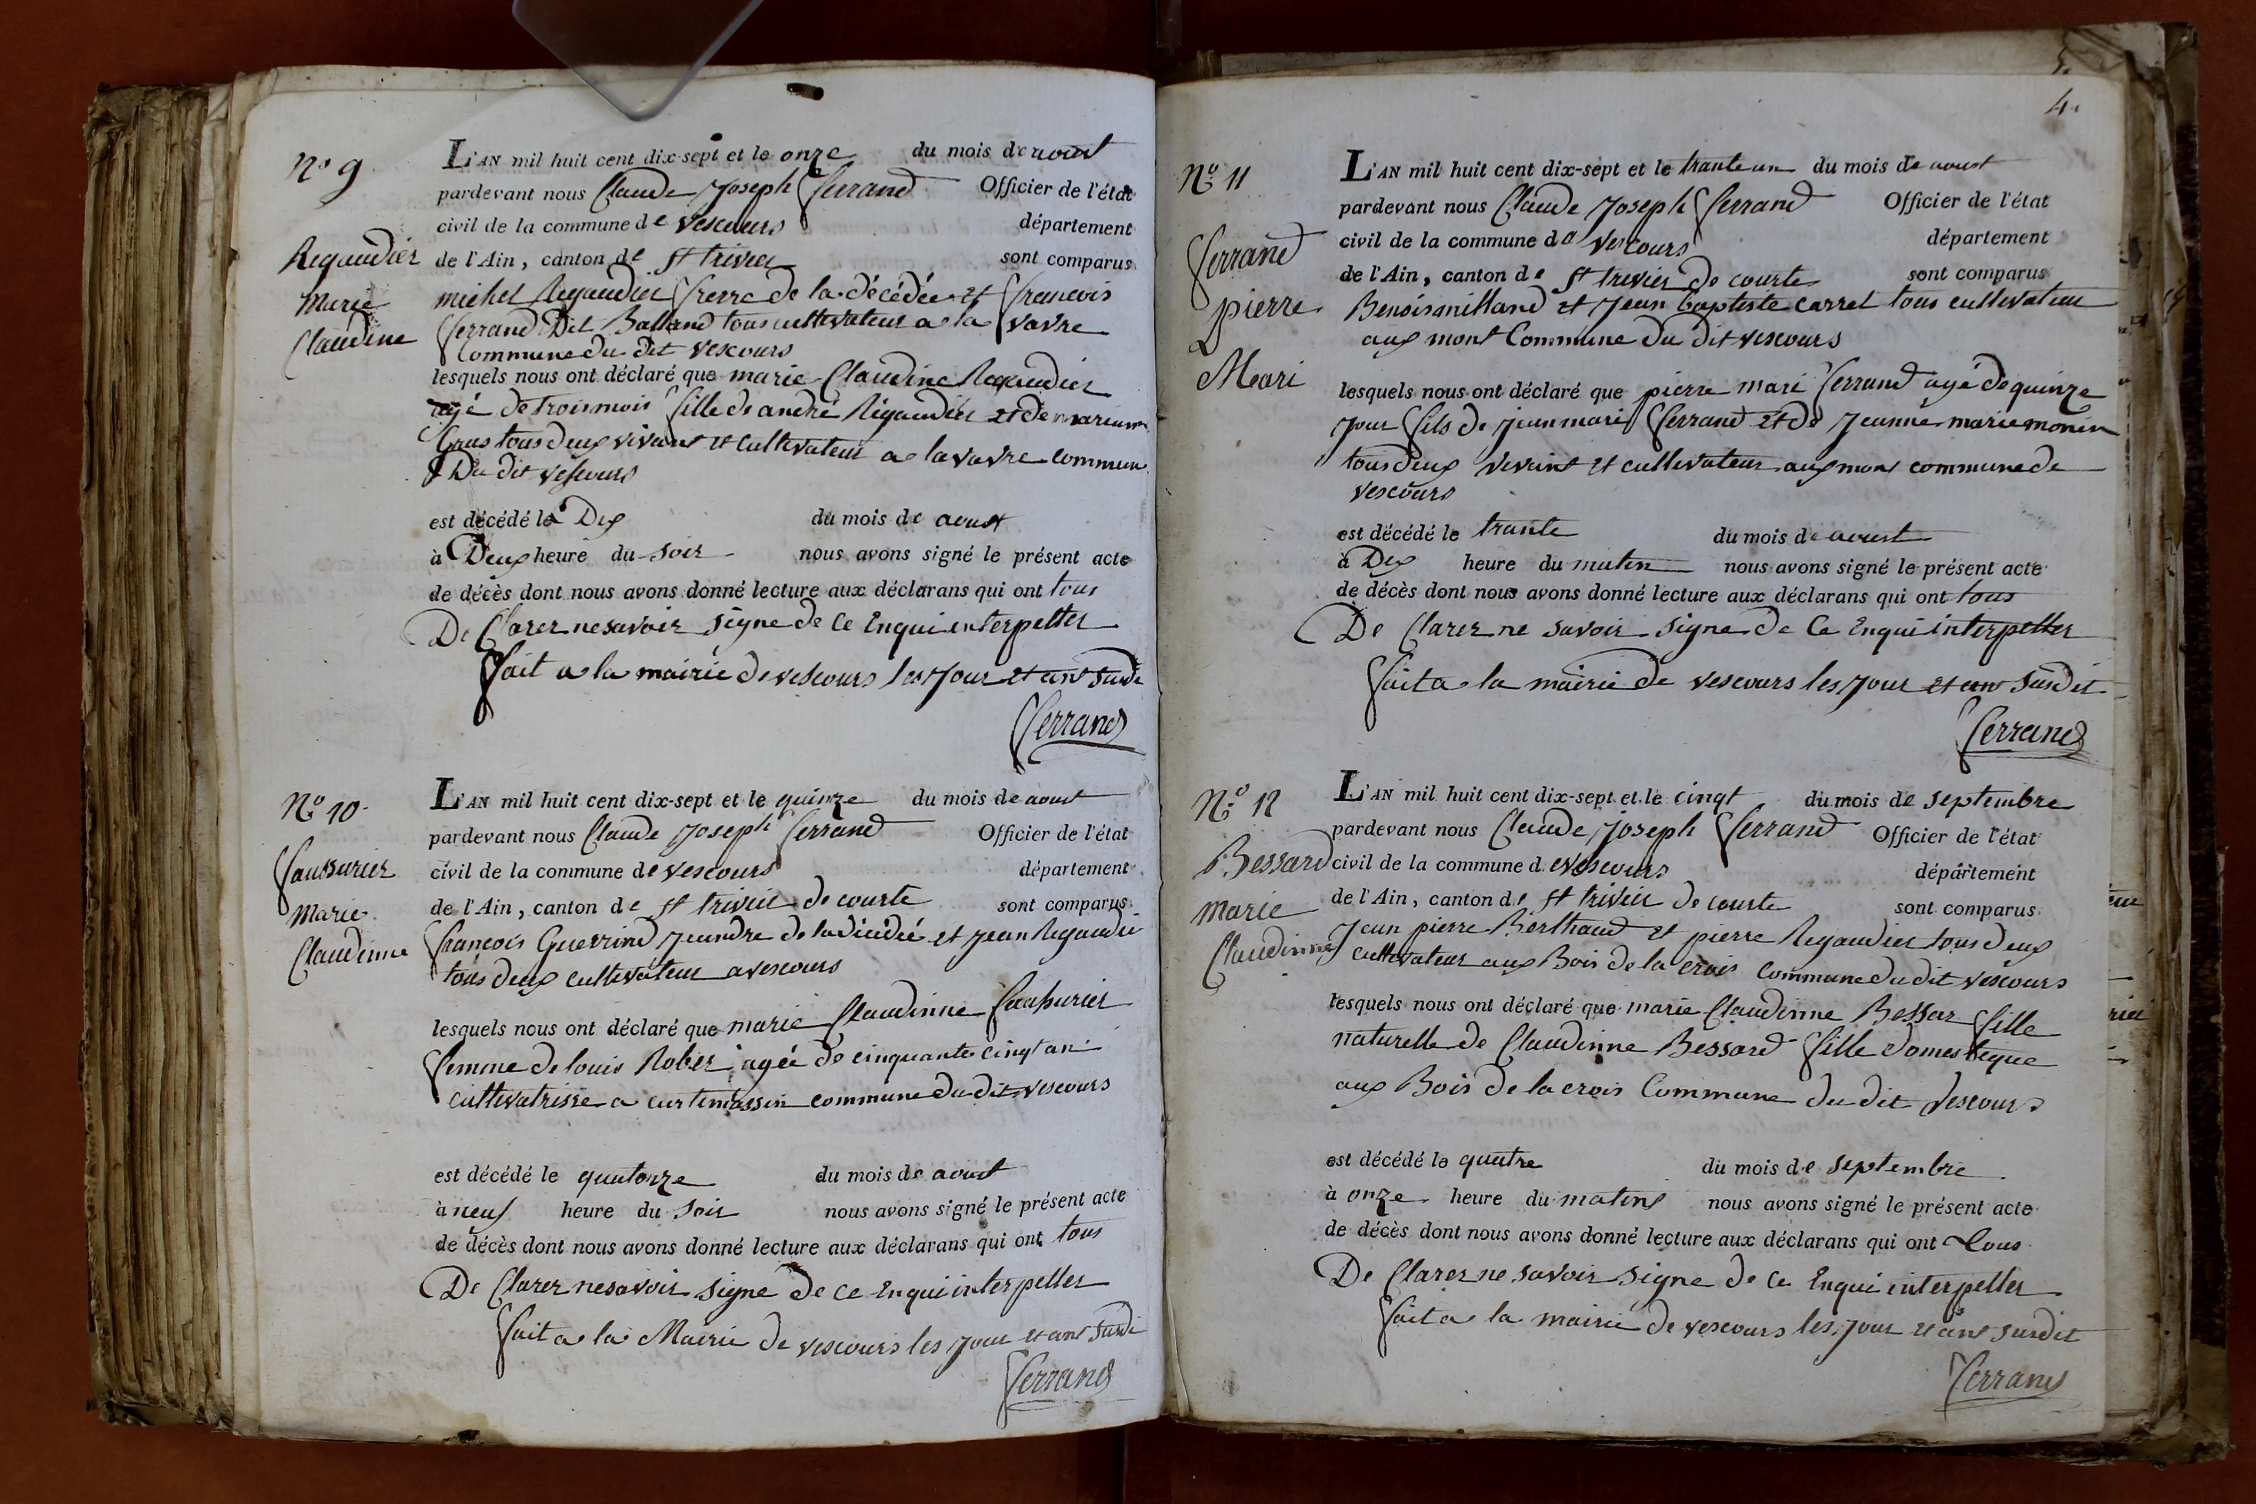 No 9
Regaudier
Marie
Claudine
L'AN mil huit cent dix-sept et le onze du mois de aoust
pardevant nous Claude Joseph Ferrand Officier de l'état
civil de la commune de vescours département
de l'Ain, canton de st trivier sont comparus
michel Regaudier frerre de la décédée et francois
ferrand Dit Balland tous cultivateur a la vavre
Commune du dit vescours
lesquels nous ont déclaré que marie Claudine Regaudier
agé de trois mois fille de andré Regaudier et de marianne
tous deux vivant et cultivateur a la vavre commune
Du dit vescours
est décédé le Dix du mois de aoust
à Deux heure du soir nous avons signé le présent acte
de décès dont nous avons donné lecture aux déclarans qui ont tous
De Clarer ne savoir signe de ce Enqui interpeller
fait a la mairie de vescours les Jour et ant susdi
Ferrand
No 10
Faussurier
Marie
Claudinne
L'AN mil huit cent dix-sept et le quinze du mois de aoust
pardevant nous Claude Joseph ferrand Officier de l'état
civil de la commune de vescours département
de l'Ain, canton de st trivier de courte sont comparus
françois Guerrind Jeandre de la dicédée et Jean Regaudié
tous deux cultivateur a vescours
lesquels nous ont déclaré que marie Claudinne faussurier
femme de louis Rober agée de cinquante cinqt an
cultivatrisse a curtimassin commune du dit vescours
est décédé le quatorze du mois de aoust
à neuf heure du soir nous avons signé le présent acte
de décès dont nous avons donné lecture aux déclarans qui ont tous
De Clarer ne savoir signe de ce Enqui interpeller
fait a la Mairie de vescours les Jour et ant susdi
Ferrand
5.
4.
No 11
Ferrand
pierre
Mari
L'AN mil huit cent dix-sept et le trante un du mois de aoust
pardevant nous Claude Joseph Ferrand Officier de l'état
civil de la commune de vescours département
de l'Ain, canton de st trivier de courte sont comparus
Benois milland et Jean baptiste carret tous cultivateur
aux mont Commune du dit vescours
lesquels nous ont déclaré que pierre mari ferrand agé de quinze
Jour fils de Jean mari ferrand et de Jeanne marie monin
tous deux vivant et cultivateur aux mont commune de
vescours
est décédé le trante du mois de aoust
à Dix heure du matin nous avons signé le présent acte
de décès dont nous avons donné lecture aux déclarans qui ont tous
De Clarer ne savoir signe de Ce Enqui interpeller
fait a la mairie de vescours les Jour et ant susdit
Ferrand
No 12
Bessard
Marie
Claudinne
L'AN mil huit cent dix-sept et le cinqt du mois de septembre
pardevant nous Claude Joseph Ferrand Officier de l'état
civil de la commune de vescours département
de l'Ain, canton de st trivier de courte sont comparus
Jean pierre Berthaud et pierre Regaudier tous deux
cultivateur aux Bois de la crois Commune du dit vescours
lesquels nous ont déclaré que marie Claudinne Bessar fille
naturelle de Claudinne Bessard fille domestique
aux Bois de la crois Commune du dit vescours
est décédé le quatre du mois de septembre
à onze heure du matins nous avons signé le présent acte
de décès dont nous avons donné lecture aux déclarans qui ont tous
De Clarer ne savoir signe de Ce Enqui interpeller
fait a la mairie de vescours les Jour et ant susdit
Ferrand